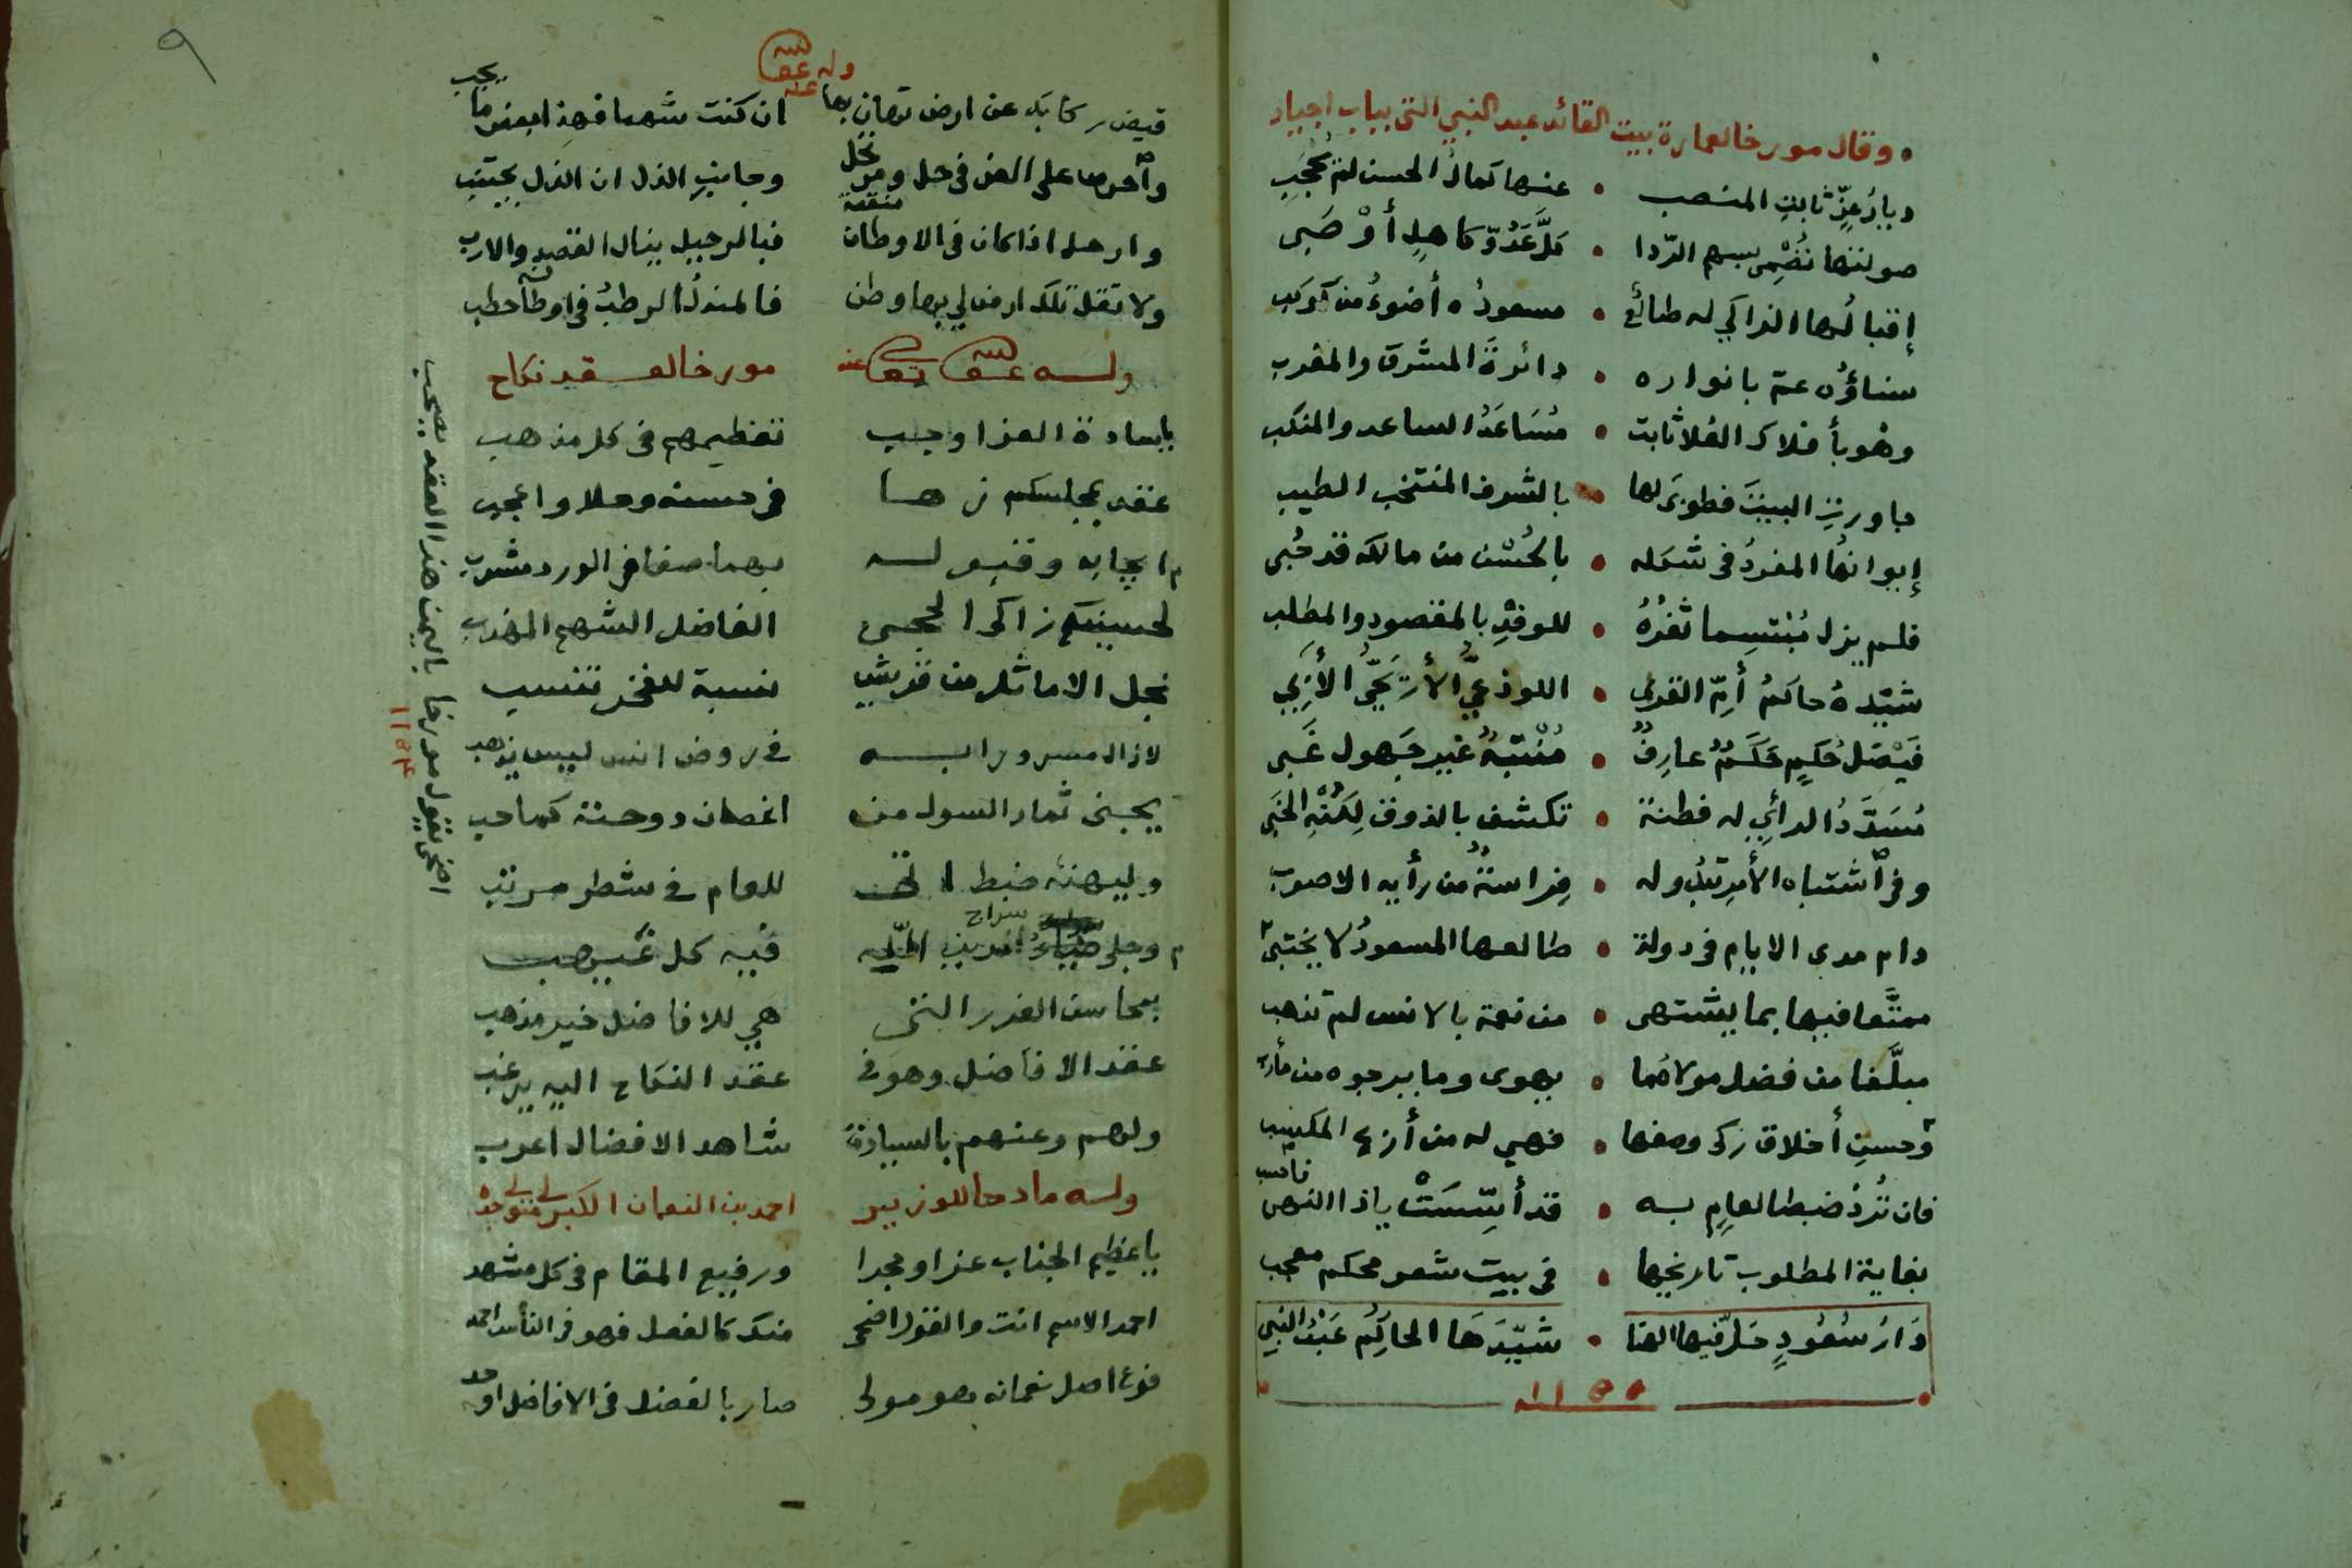 وقال مورخا لعمارة بيت القائد عبد النبي التي بباب اجياد
ديارُ عزٍّ ثابتِ المنصب • عنها كمالُ الحسن لم يُحجَبِ
صولتها تُصْمِي بسهم الرّدا • كلَّ عَدُوّ كاهلٍ أوْ صَبِى
إقبالُها الزاكي له طالع • مسعودُه أضوءُ من كوكب
سناؤُه عمّ بانواره • دائرةَ المشرق والمغرب
وهْو بأفلاك العُلا ثابت • مُسَاعَدُ الساعد والمنكب
جاورتِ البيتَ فطوبَى لها • بالشرف المنتخب الطيب
إيوانهُا المفردُ فى شكله • بالحُسْن من مالكه قد حُبى
فلم يزل مُبْتسِما ثغرُهُ • للوفْدِ بالمقصودِ والمطلب
شيّده حاكمُ أمّ القرى • اللوذعيُّ الأرْيَحِيُّ الأَرَبِي
فَيْصَلُ حُكمٍ حَكَمٌ عارِفٌ • مُنْتبِهٌ غير جَهول غَبى
مُسَدَّدُ الرأيِ له فطنة • تكشف بالذوق لِكُنْهِ الخَبى
وفى اشتباه الأمر تبدُو له • فِراسةٌ من رأيه الاصوب
دام مدى الايام فى دولة • طالعها المسعودُ لا يختبى
ممتَّعا فيها بما يشتهى • من نعمة بالانس لم تذهب
مبلَّغا من فضل مولاه ما • يهوى وما يرجوه من مأرب
وحسنِ أخلاق زكى وصفها • فهي له من أربح المكسب
فان تُرِدْ ضبطا لعامٍ به • قد أُسِّسَتْ ياذا النهى فاحسب
بغاية المطلوب تاريخها • فى بيت شعر محكم معجب
دَارُ سُعُودٍ حَلّ فيها الهنا • شَيّدَهَا الحاكِمُ عَبْدُ النبي
١١٥٥
٩
وله عفا الله عنه
قيض ركابك عن ارض تهان بها ان كنت شهما فهذا بعض ما يجب
واحرص على العز فى حل ومرتحل وجانب الذل ان الذل يجتنب
وارحل اذا كان فى الاوطان منقصة فبالرحيل ينال القصد والارب
ولا تقل تلك ارض لي بها وطن فالمندلُ الرطبُ فى اوطانه حطب
وله عفا الله تعالى عنه مورخا لعقد نكاح
يا سادة العز اوجب تعظيمهم فى كل مذهب
عقد بمجلسكم زها فى حسنه وحلا واعجب
ايجابه وقبوله بهما صفا فى الورد مشرب
لحسينكم زاكى الحجى الفاضل الشهم المهذب
نجل الاماثل من قريش نسبة للفخر تنسب
لازال مسرورا به فى روض انس ليس يذهب
يجنى ثمار السول من اغصان دوحته كما حب
وليهنه ضبط اتى للعام فى شطر مرتب
وجلى سراج فيه كل غيهب
بمحاسن الغرر التى هي للافاضل خير مذهب
عقد الافاضل وهو فى عقد النكاح اليه يرغب
ولهم وعنهم بالسيادة شاهد الافضال اعرب
اضحى يقول مورخا باليمن هذا العقد يصحب
١١٥٤
وله مادحا للوزير احمد بن النعمان الكبير
يا عظيم الجناب عزا ومجدا ورفيع المقام فى كل مشهد
احمد الاسم انت والقول اضحى منك كالفعل فهو فى الناس احمد
فرع اصل نعمانه هو مولى صار بالفضل فى الافاضل اوحد